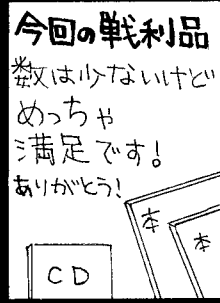 今回の戦利品
数は少ないけど
めっちゃ
満足です!
ありがとう!
本
本
CD